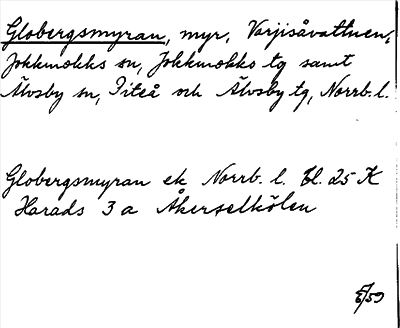 Globergsmyran, myr, Varjisåvattnen,
Jokkmokks sn, Jokkmokks tg samt
Älvsby sn, Piteå och Älvsby tg, Norrb. l.
Globergsmyran ek Norrb. l. Bl. 25 K
Harads 3 a Åkerselkölen
E/59